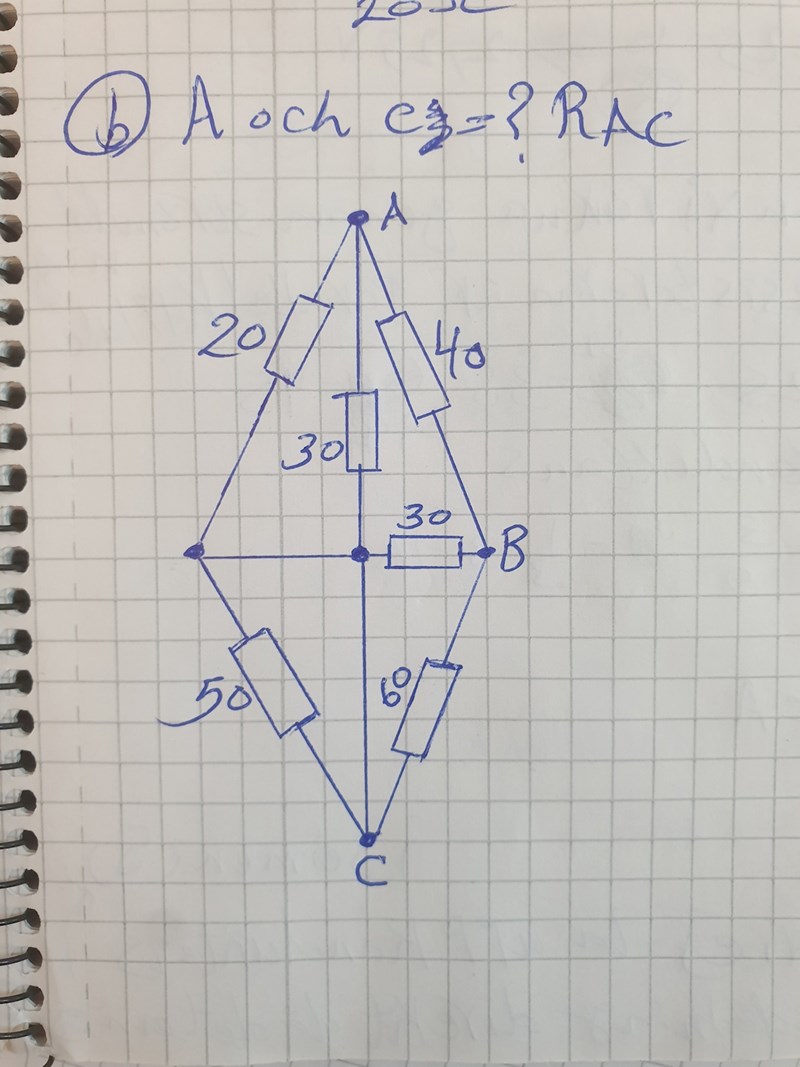 20Ω
b A och C = ? RAC
A
20
40
30
30
B
50
60
C